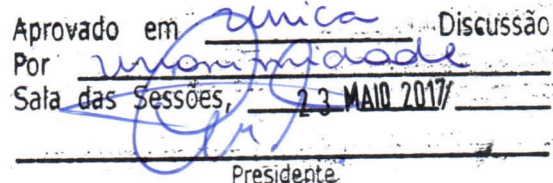 Aprovado em Unica Discussão
Por unanimidade
Sala das Sessões, 23 MAIO 2017/
Presidente